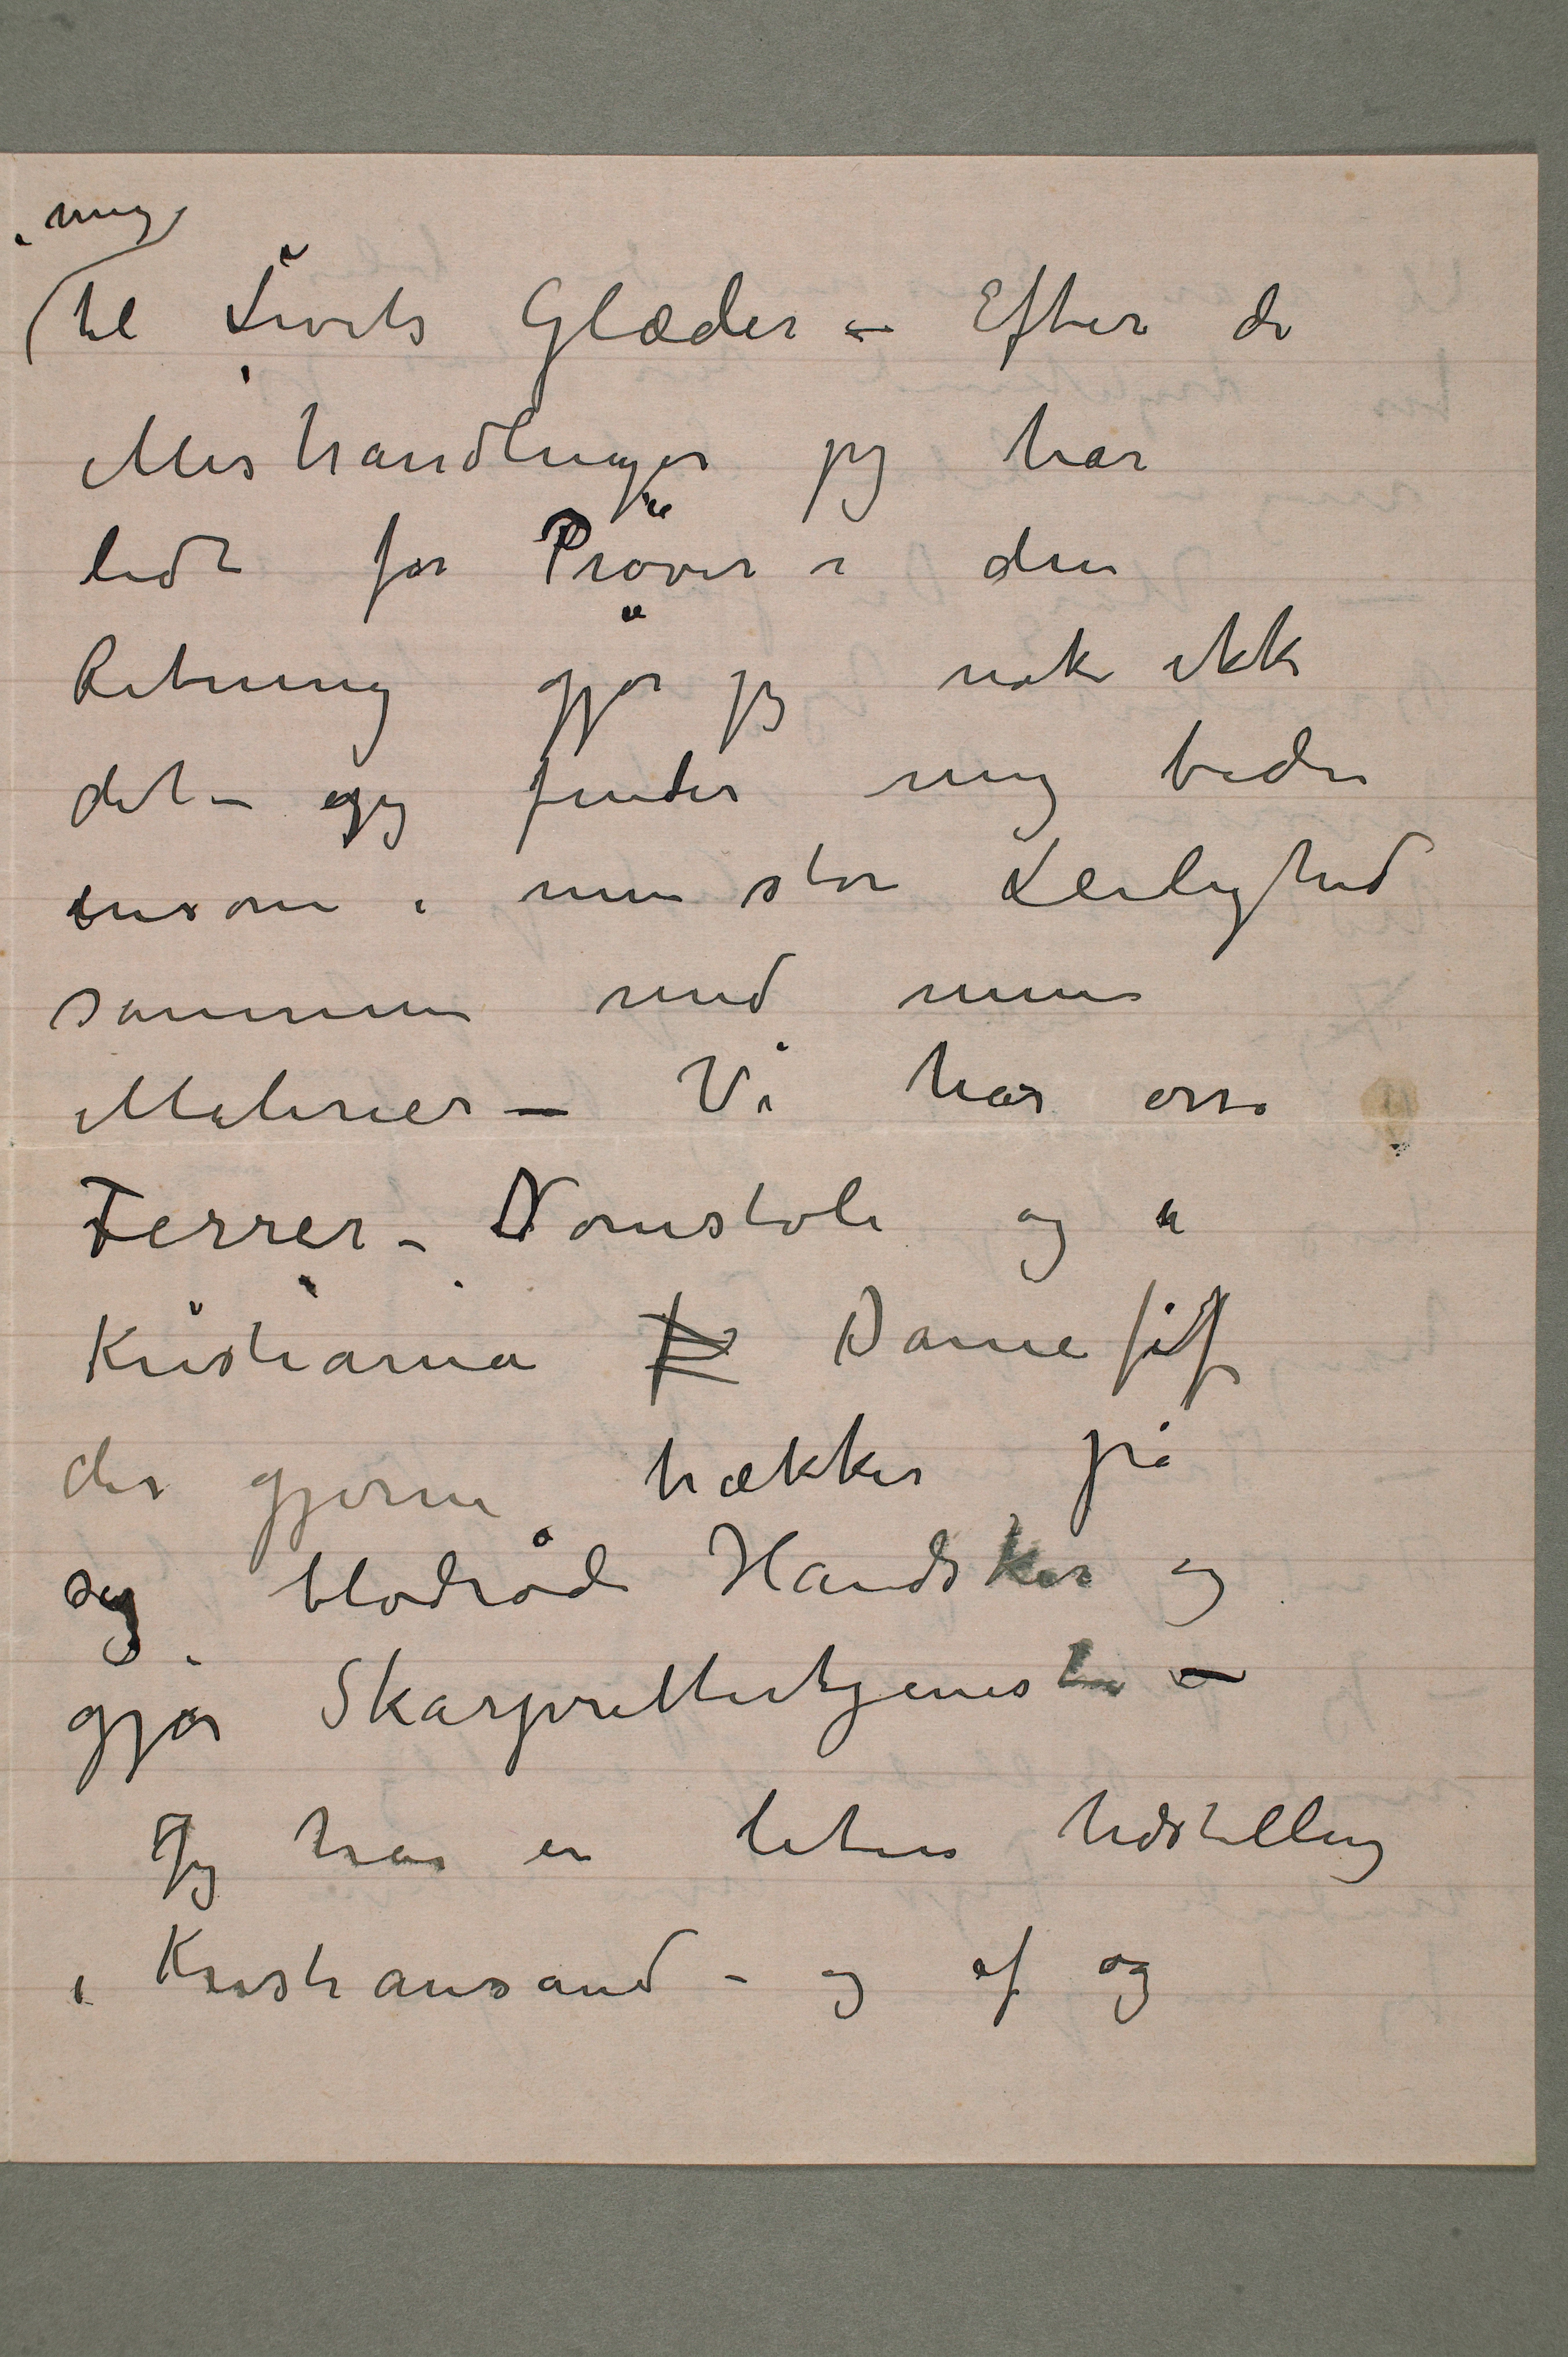 mig
til Livets Glæder – Efter de
Mishandlinger jeg har
lidt for Prøver i den
Retning gjør jeg nok ikke
det – jeg finder mig bedre
ensom i min store Leilighed
sammen med mine
Malerier – Vi har osså
Ferrer – Domstole og
Kristiania Damefif
der gjerne trækker på
sig blodrøde Handsker og
gjør Skarprettertjeneste –
Jeg har en liten Udstilling
i Kristiansand – og af og